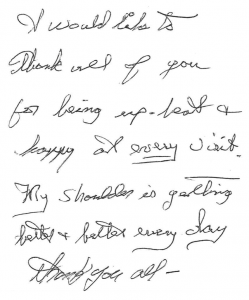 I would like to
Thank all of you
for being up-beat &
happy at every visit.
My shoulder is getting
better & better every day
Thank you all -